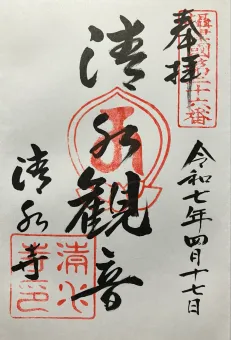 奉拝
摂津國第二十六番
令和七年四月十七日
清水観音
清水寺
清水寺印